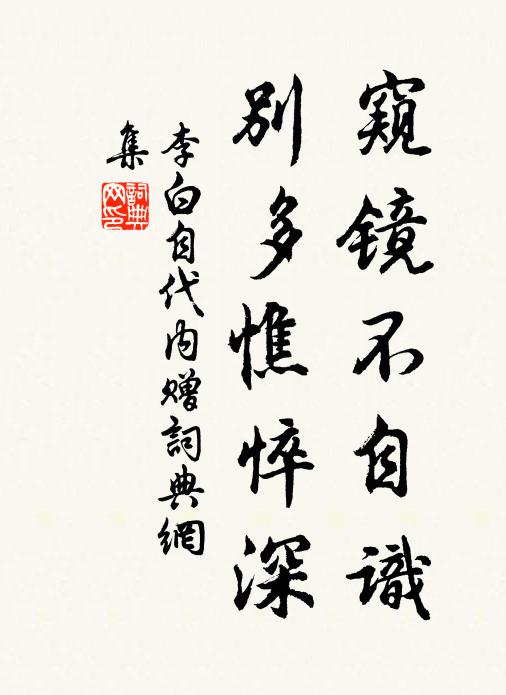 窺镜不自識
別多憔悴深
李白自代内赠詞典網
集
詞典
网印